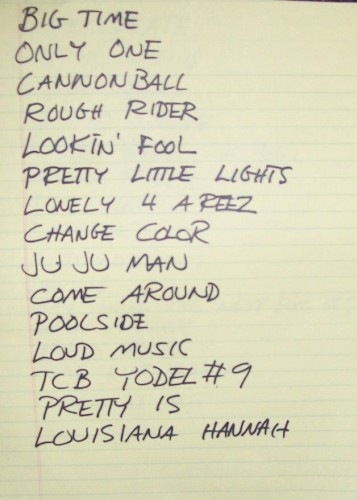 BIG TIME
ONLY ONE
CANNONBALL
ROUGH RIDER
LOOKIN' FOOL
PRETTY LITTLE LIGHTS
LONELY 4 A REEZ
CHANGE COLOR
JU JU MAN
COME AROUND
POOLSIDE
LOUD MUSIC
TCB YODEL #9
PRETTY IS
LOUISIANA HANNAH